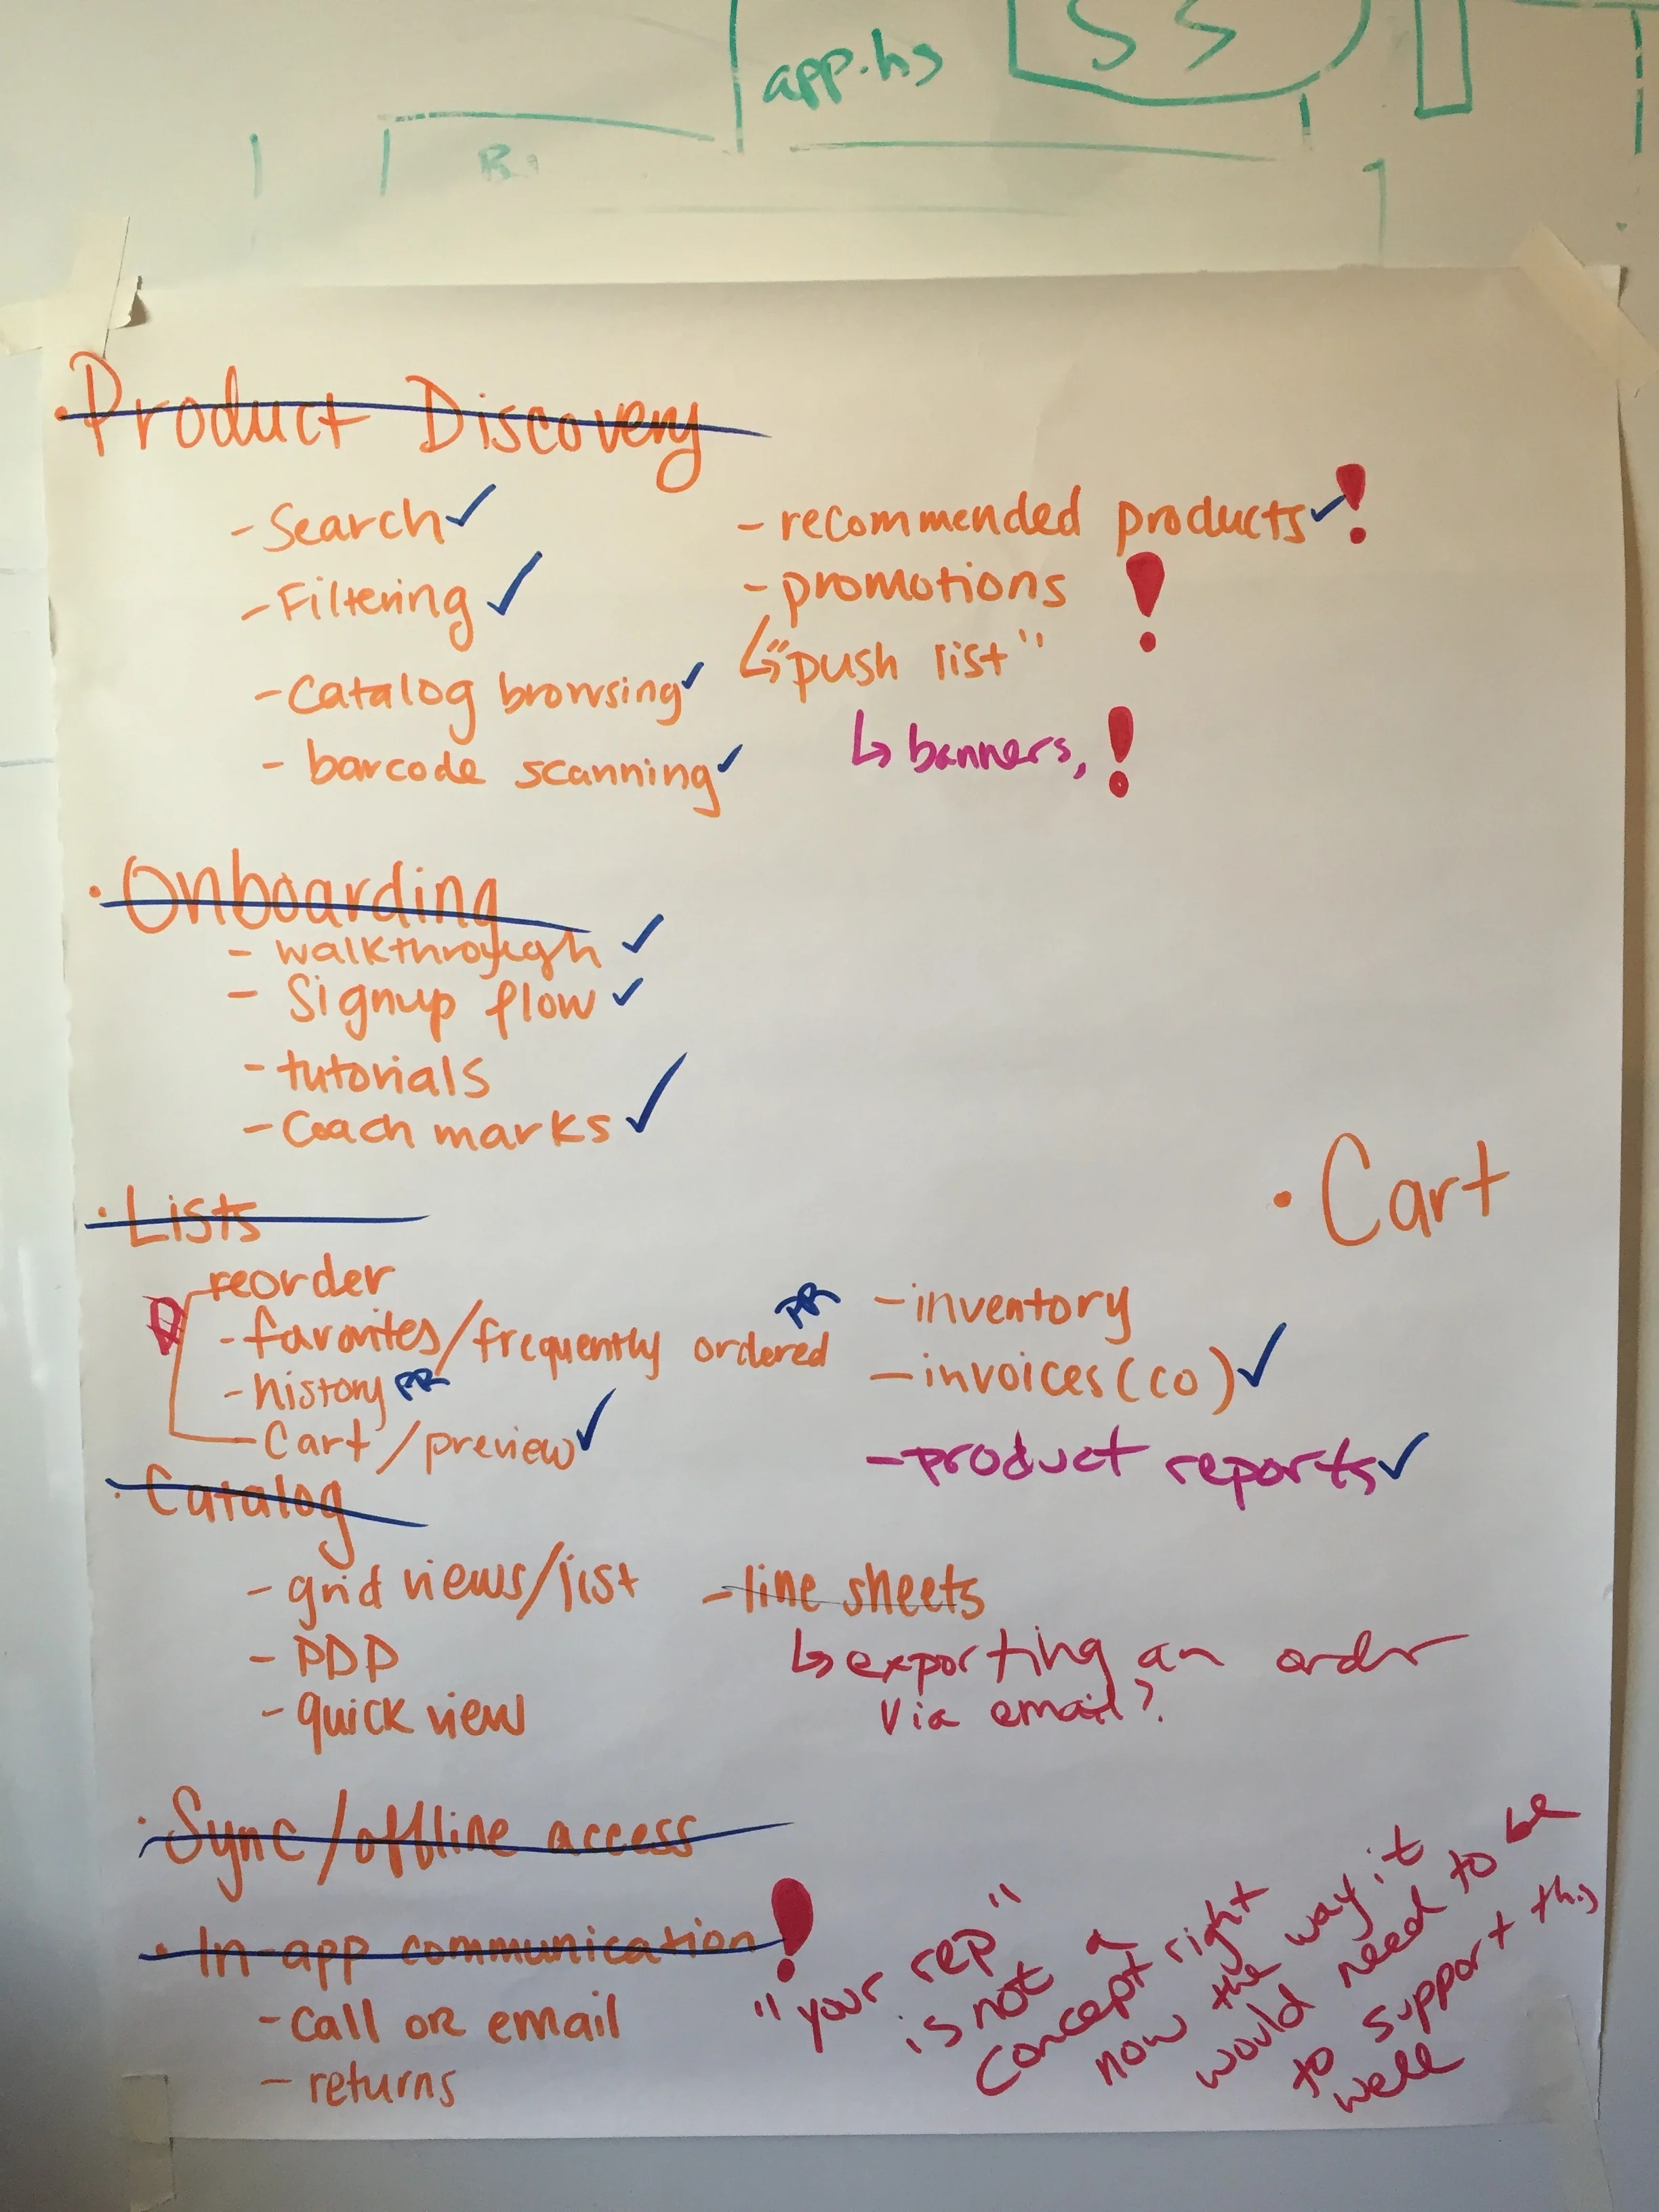 app.hs
• Product Discovery
- Search ✓
- Filtering ✓
- Catalog browsing ✓
- barcode scanning ✓
- recommended products ✓ !
- promotions !
↳ "push list"
↳ banners, !
• Onboarding
- walkthrough ✓
- Signup flow ✓
- tutorials
- Coach marks ✓
• Lists
- reorder
- favorites/frequently ordered PR
- history PR
- Cart/preview ✓
• Cart
- inventory
- invoices (co) ✓
- product reports ✓
• Catalog
- grid views/list
- PDP
- quick view
- line sheets
↳ exporting an order
via email?
• Sync/offline access
• In-app communication !
- Call or email
- returns
"your rep"
is not a
concept right
now the way it
would need to be
to support this
well